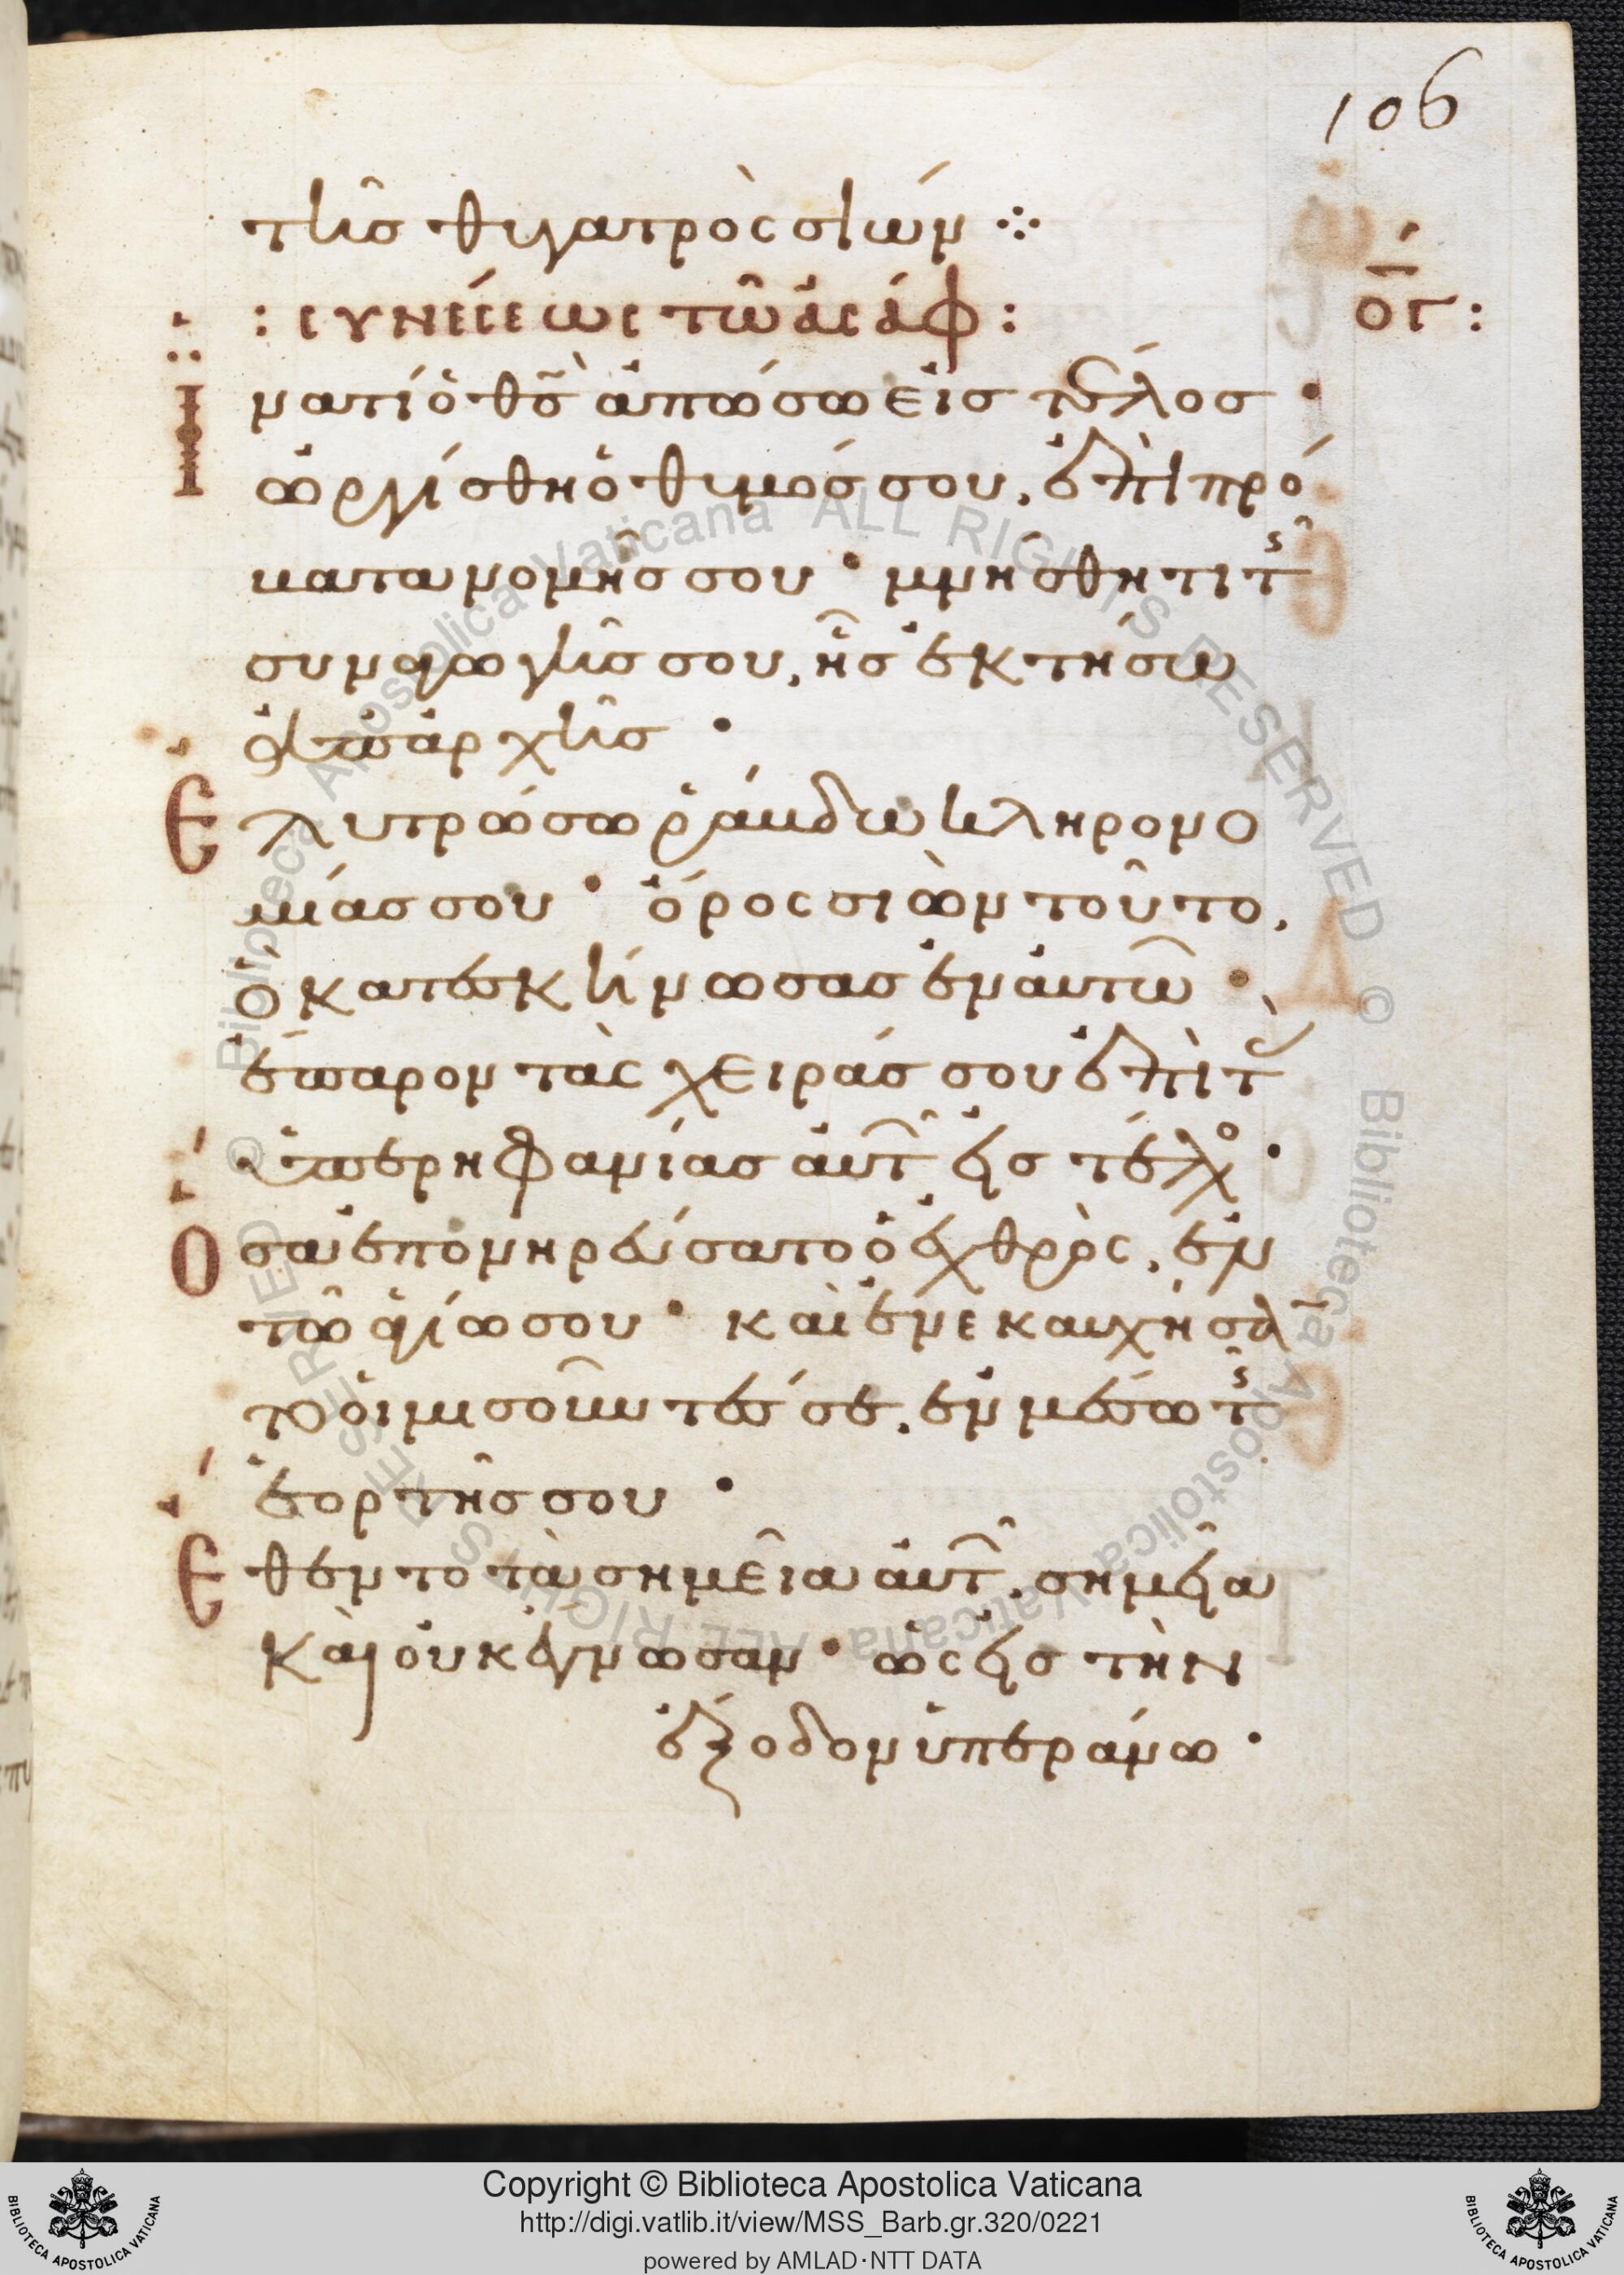 106
τῆς θυγατρὸς σιών ⁘
: ϲυνέϲεωϲ τῶ ἀϲάφ : ΟΓ :
Ἱνατί ὁ θς̃ ἀπώσω εἰς τέλος ·
ὠργίσθη ὁ θυμός σου, ἐπὶ πρό
βατα νομῆς σου · μνήσθητι τῆς
συναγωγῆς σου, ἧς ἐκτήσω
ἀπ ἀρχῆς ·
Ἐλυτρώσω ῥάβδω κληρονο
μίας σου · ὄρος σιὼν τοῦτο,
ὃ κατεσκήνωσας ἐν αυτῶ ·
ἔπαρον τὰς χεῖράς σου ἐπὶ τὰς
ὑπερηφανίας αὐτῶν εἰς τέλος ·
Ὅσα ἐπονηρεύσατο ὁ ἐχθρὸς, ἐν
τῶ ἁγίω σου · καὶ ἐνεκαυχήσαν
το οἱ μισοῦντές σε, ἐν μέσω τῆς
ἑορτῆς σου ·
Ἔθεντο τὰ σημεῖα αὐτῶν, σημεῖα
καὶ οὐκ ἔγνωσαν · ὡς εἰς τὴν
ἔξοδον ὑπεράνω ·
Copyright © Biblioteca Apostolica Vaticana
http://digi.vatlib.it/view/MSS_Barb.gr.320/0221
powered by AMLAD·NTT DATA
BIBLIOTECA APOSTOLICA VATICANA
BIBLIOTECA APOSTOLICA VATICANA
© Biblioteca Apostolica Vaticana ALL RIGHTS RESERVED © Biblioteca Apostolica Vaticana ALL RIGHTS RESERVED